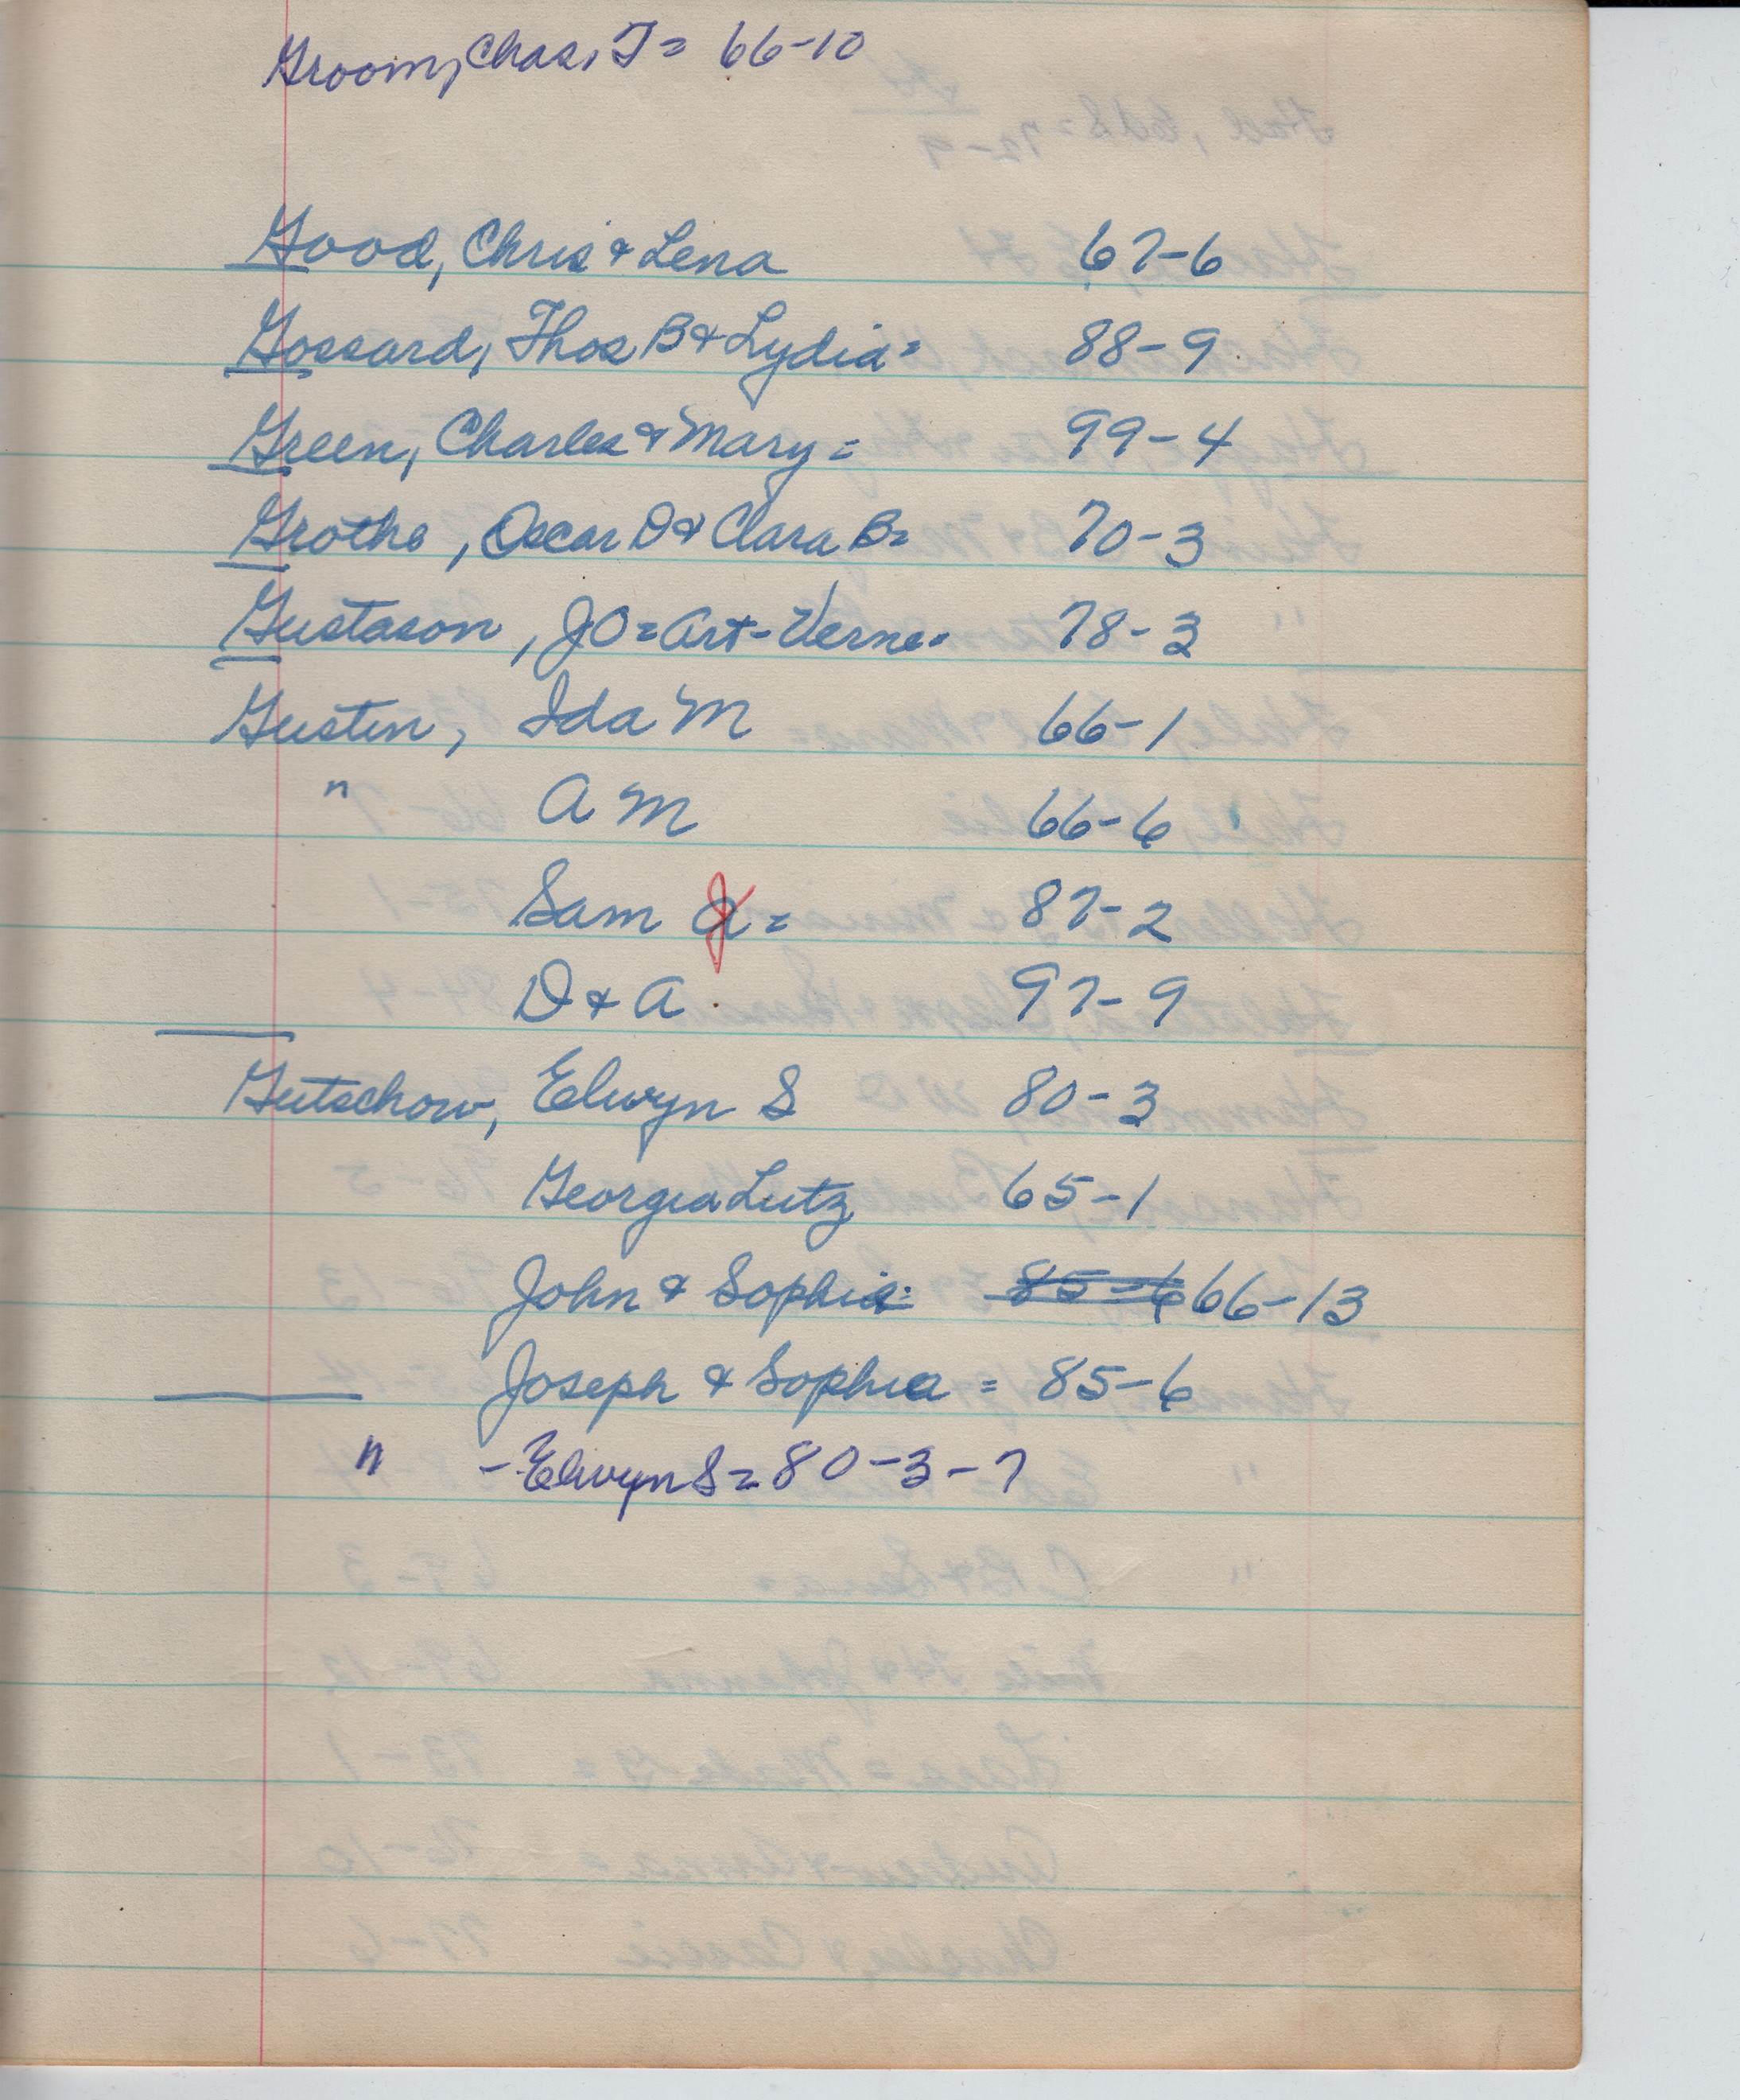 Groom, Chas, T = 66-10
Good, Chris & Lena 67-6
Gossard, Thos B & Lydia = 88-9
Green, Charles & Mary = 99-4
Grothe, Oscar D & Clara B = 70-3
Gustason, JO = Art - Verne = 78-3
Gustin, Ida M 66-1
" A M 66-6
Sam J = 87-2
D & A 97-9
Gutschow, Elwyn S 80-3
Georgia Lutz 65-1
John & Sophia = 85-6 66-13
Joseph & Sophia = 85-6
" - Elwyn S = 80-3-7